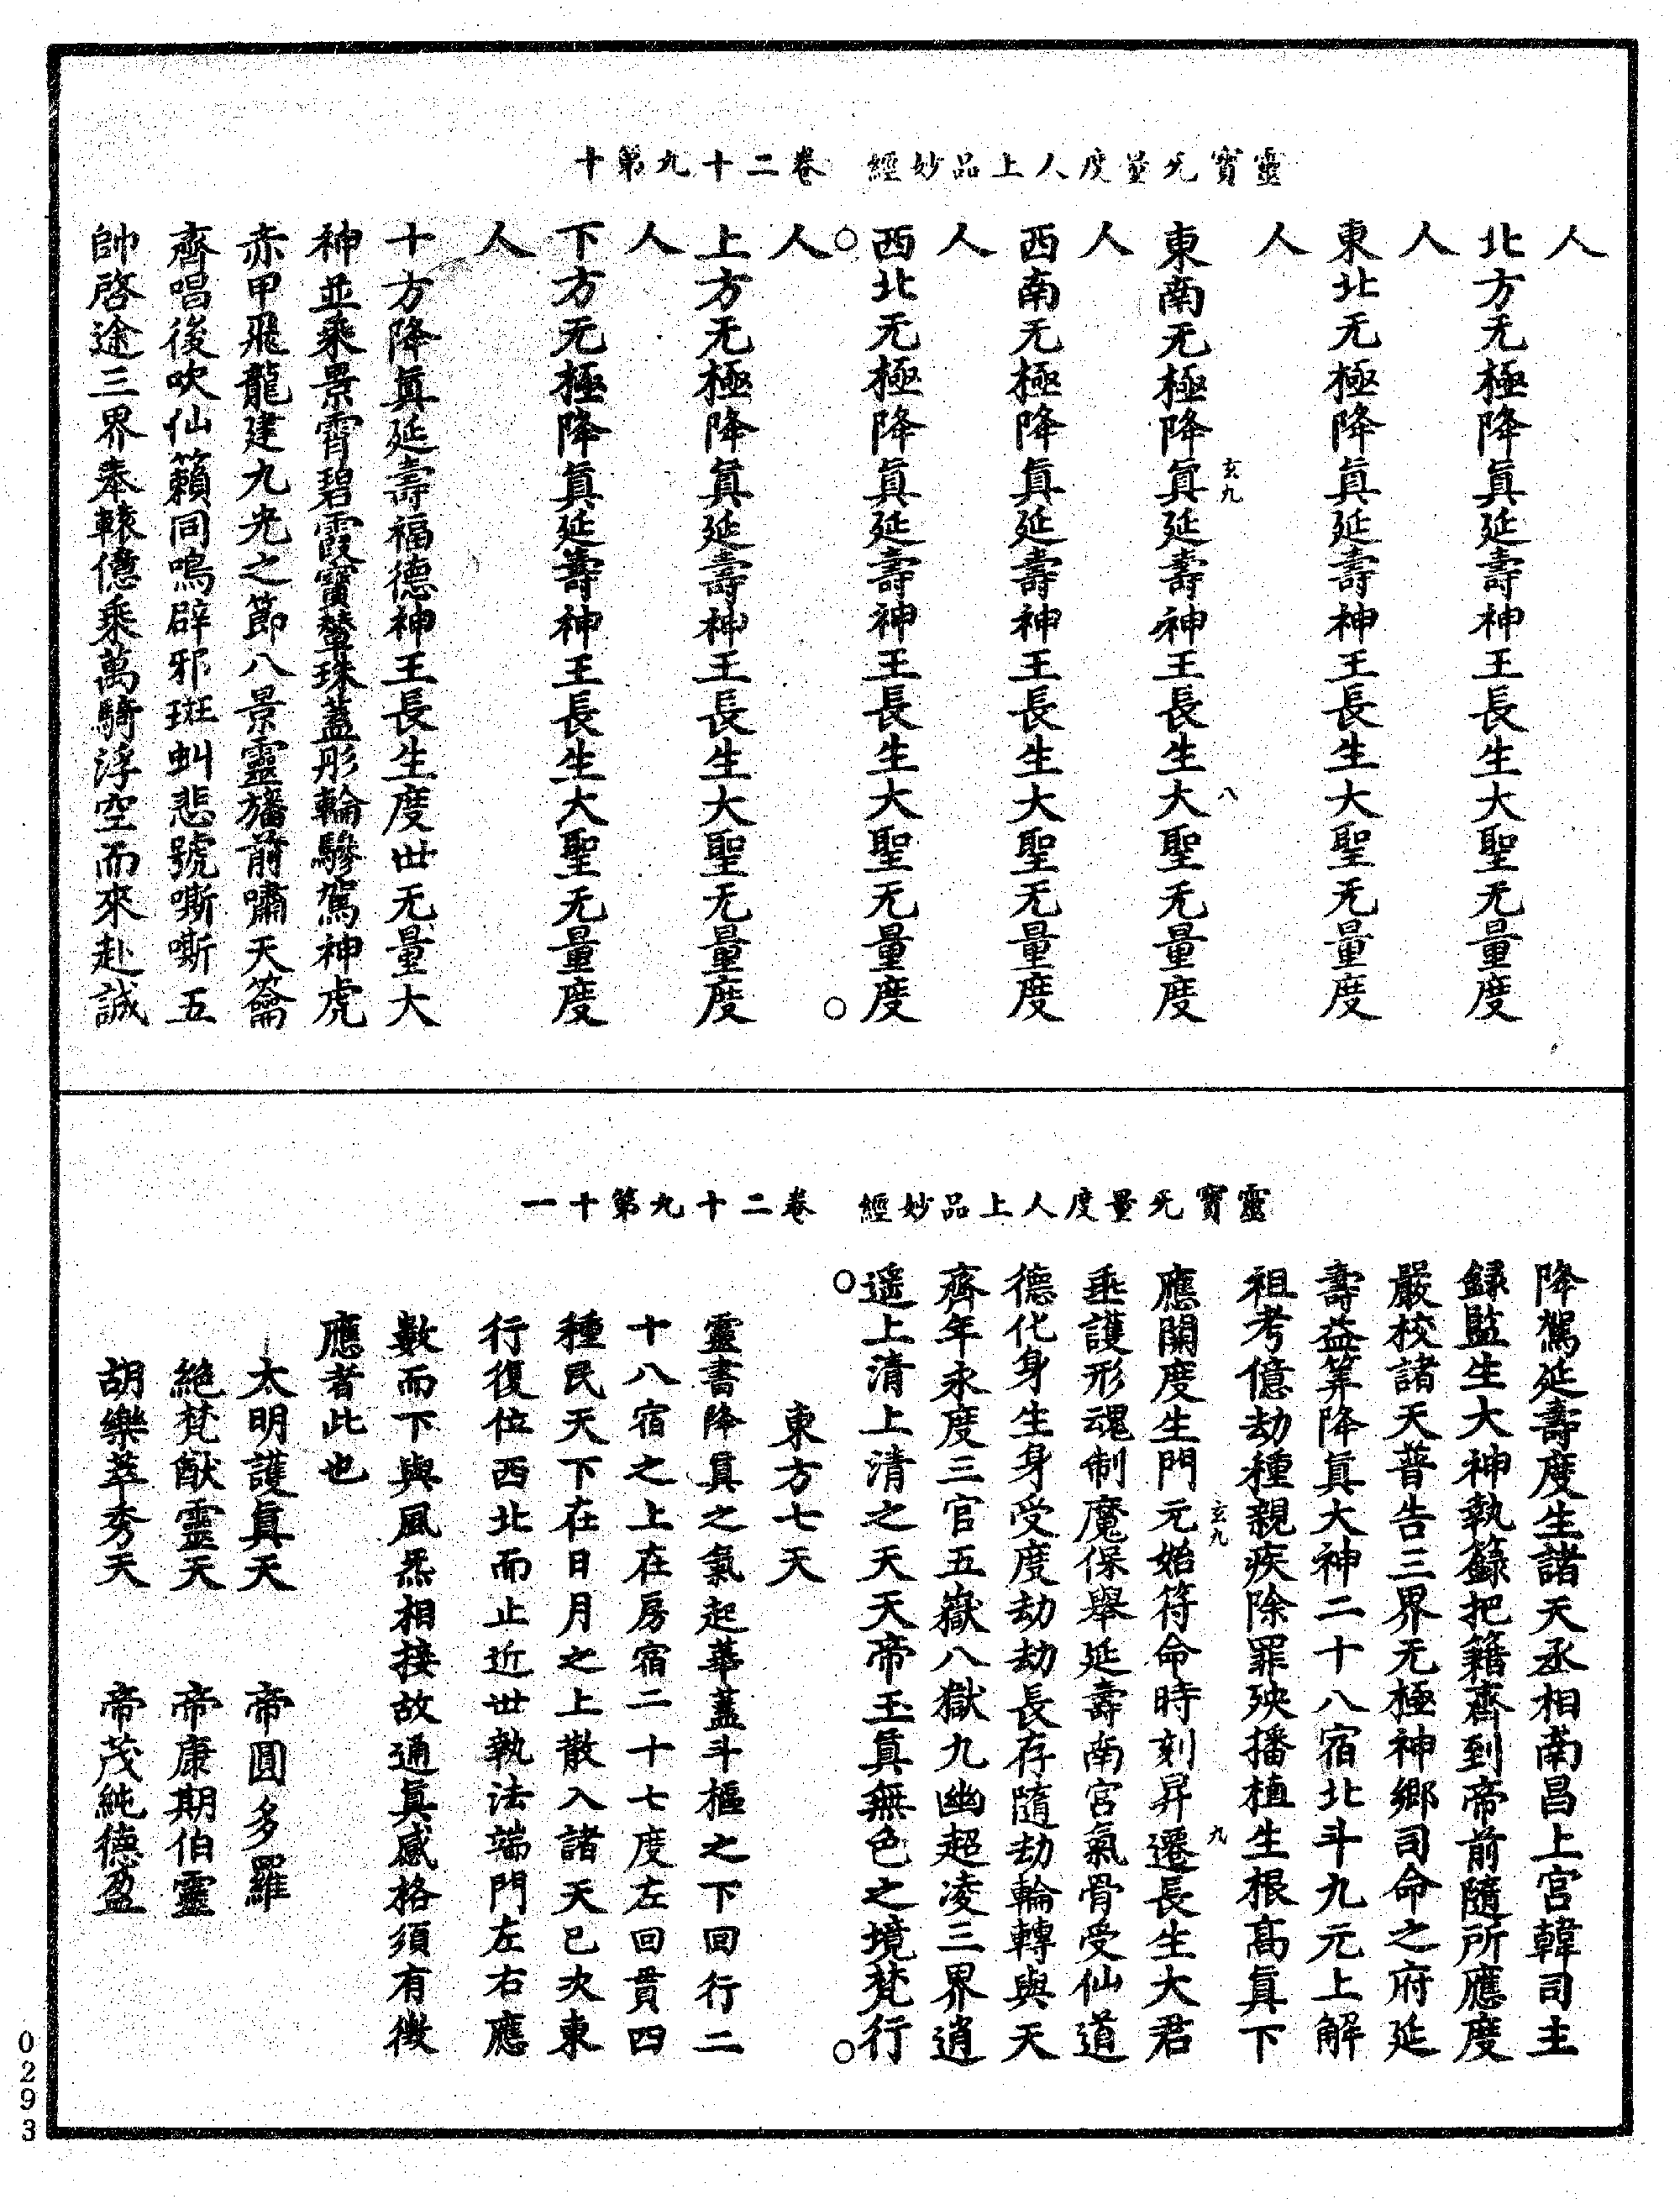 靈寶无量度人上品妙經　卷二十九第十
人
北方无極降眞延壽神王長生大聖无量度
人
東北无極降眞延壽神王長生大聖无量度
人
玄九　八
東南无極降眞延壽神王長生大聖无量度
人
西南无極降眞延壽神王長生大聖无量度
人
西北无極降眞延壽神王長生大聖无量度
○　○
人
上方无極降眞延壽神王長生大聖无量度
人
下方无極降眞延壽神王長生大聖无量度
人
十方降眞延壽福德神王長生度世无量大
神並乘景霄碧霞寶輦珠蓋彤輪驂駕神虎
赤甲飛龍建九光之節八景靈旛前嘯天籥
齊唱後吹仙籟同鳴辟邪斑虯悲號嘶嘶五
帥啓途三界奉轅億乘萬騎浮空而來赴誠
靈寶无量度人上品妙經　卷二十九第十一
降駕延壽度生諸天丞相南昌上宮韓司主
録監生大神執籙把籍齊到帝前隨所應度
嚴校諸天普告三界无極神鄉司命之府延
壽益筭降眞大神二十八宿北斗九元上解
祖考億劫種親疾除罪殃播植生根髙眞下
玄九　九
應開度生門元始符命時刻昇遷長生大君
垂護形魂制魔保舉延壽南宮氣骨受仙道
德化身生身受度劫劫長存隨劫輪轉與天
齊年永度三官五嶽八獄九幽超凌三界逍
遥上清上清之天天帝玉眞無色之境梵行
○　○
東方七天
靈書降眞之氣起華蓋斗樞之下回行二
十八宿之上在房宿二十七度左回貫四
種民天下在日月之上散入諸天已次東
行復位西北而止近世執法端門左右應
數而下與風炁相接故通眞感格須有徴
應者此也
太明護眞天　帝圓多羅
絶梵猷靈天　帝康期伯靈
胡樂萃秀天　帝茂純德盈
0293